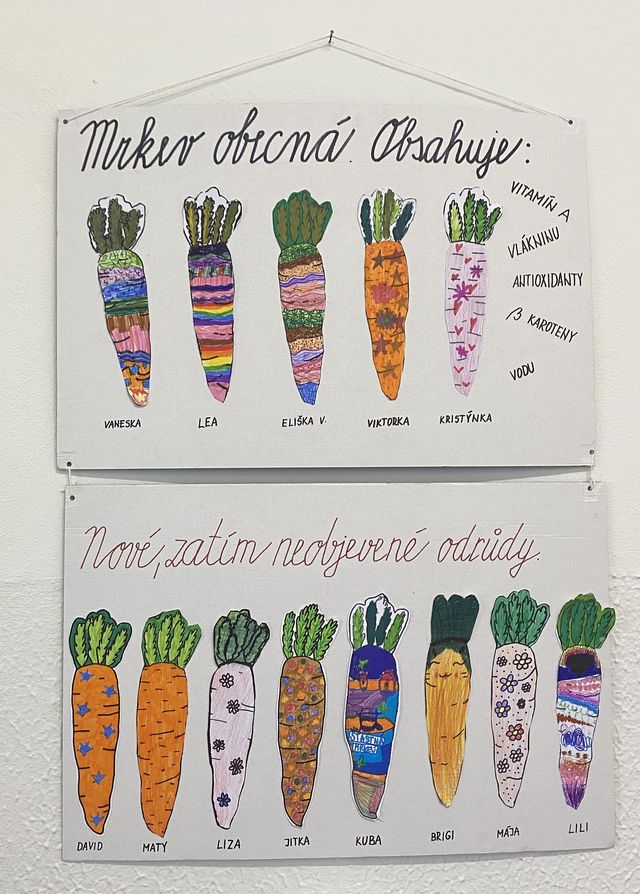 Mrkev obecná. Obsahuje:
VITAMÍN A
VLÁKNINU
ANTIOXIDANTY
β KAROTENY
VODU
VANESKA LEA ELIŠKA V. VIKTORKA KRISTÝNKA
Nové, zatím neobjevené odrůdy.
ŠŤASTNÁ
MRKEV
DAVID MATY LIZA JITKA KUBA BRIGI MÁJA LILI